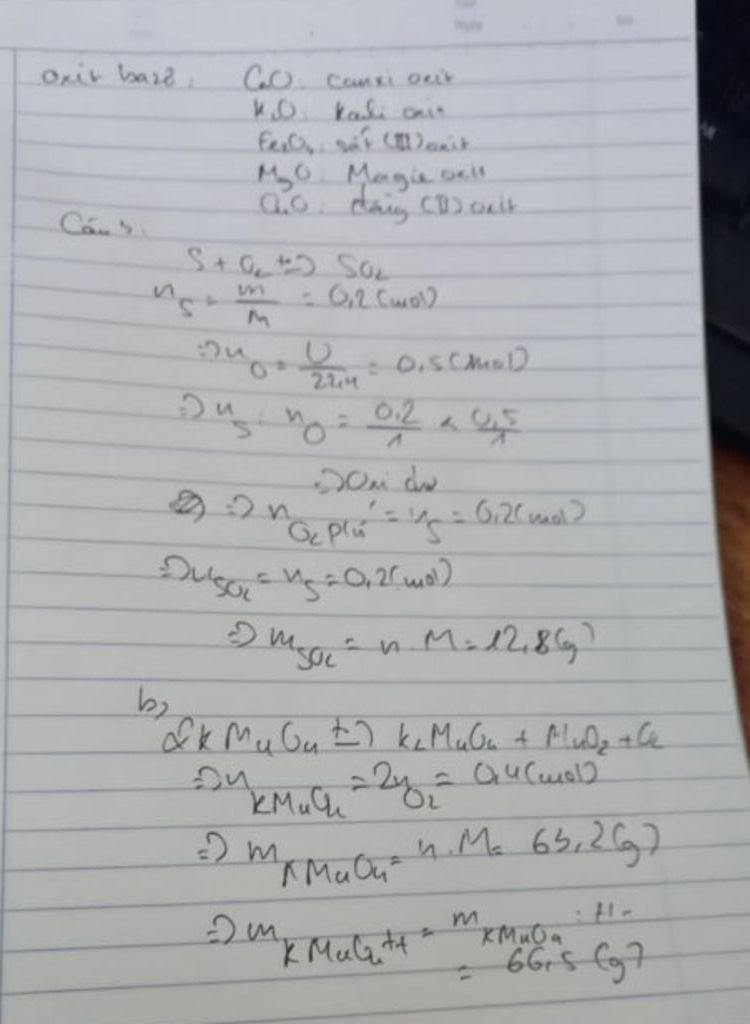 oxit bazơ: CaO: canxi oxit
K₂O: Kali oxit
Fe₂O₃: sắt (III) oxit
MgO: Magie oxit
CuO: đồng (II) oxit
Câu 3:
S + O₂ t° → SO₂
n_S = m/M = 0,2 (mol)
⇒ n_O = V/22,4 = 0,5 (mol)
⇒ n_S : n_O = 0,2/1 < 0,5/1
⇒ Oxi dư
⇒ n_O₂ pứ = n_S = 0,2 (mol)
⇒ n_SO₂ = n_S = 0,2 (mol)
⇒ m_SO₂ = n . M = 12,8 (g)
b,
2KMnO₄ t° → K₂MnO₄ + MnO₂ + O₂
⇒ n_KMnO₄ = 2n_O₂ = 0,4 (mol)
⇒ m_KMnO₄ = n . M = 63,2 (g)
⇒ m_KMnO₄ tt = m_KMnO₄ : H
= 66,5 (g)